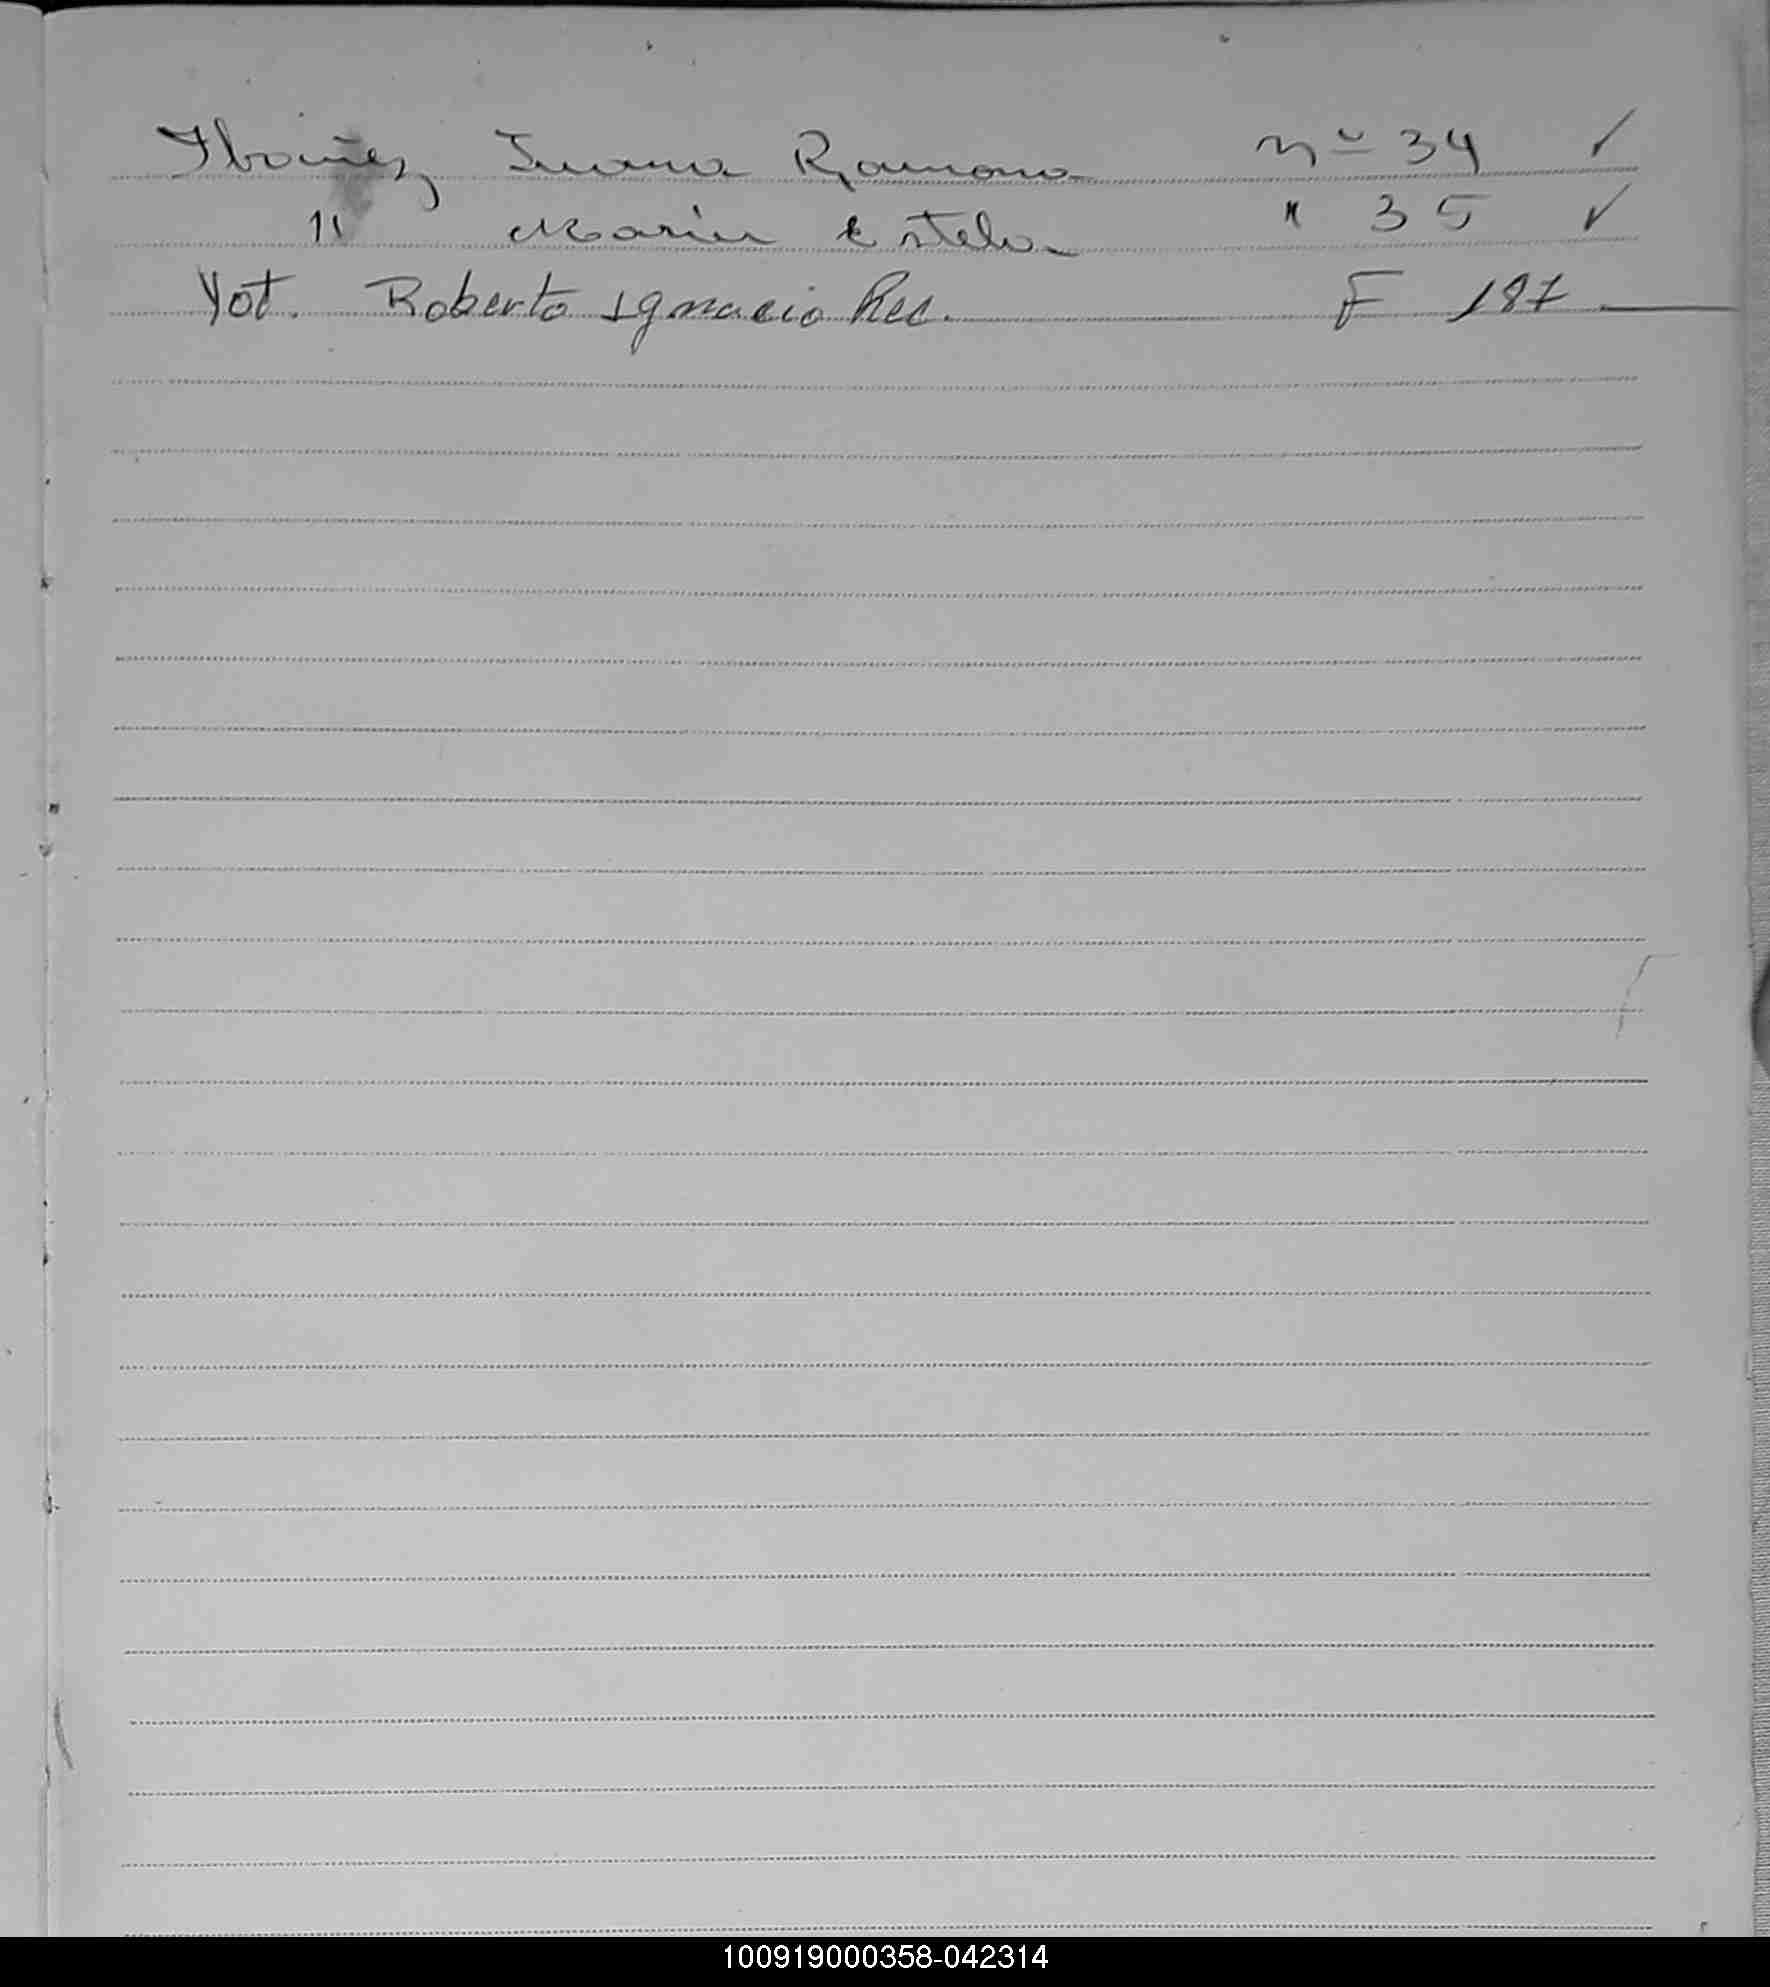 Ibañez Juana Ramona nº 34 ✓
" Maria Estela " 35 ✓
Yot. Roberto Ignacio Rec. F 187
100919000358-042314